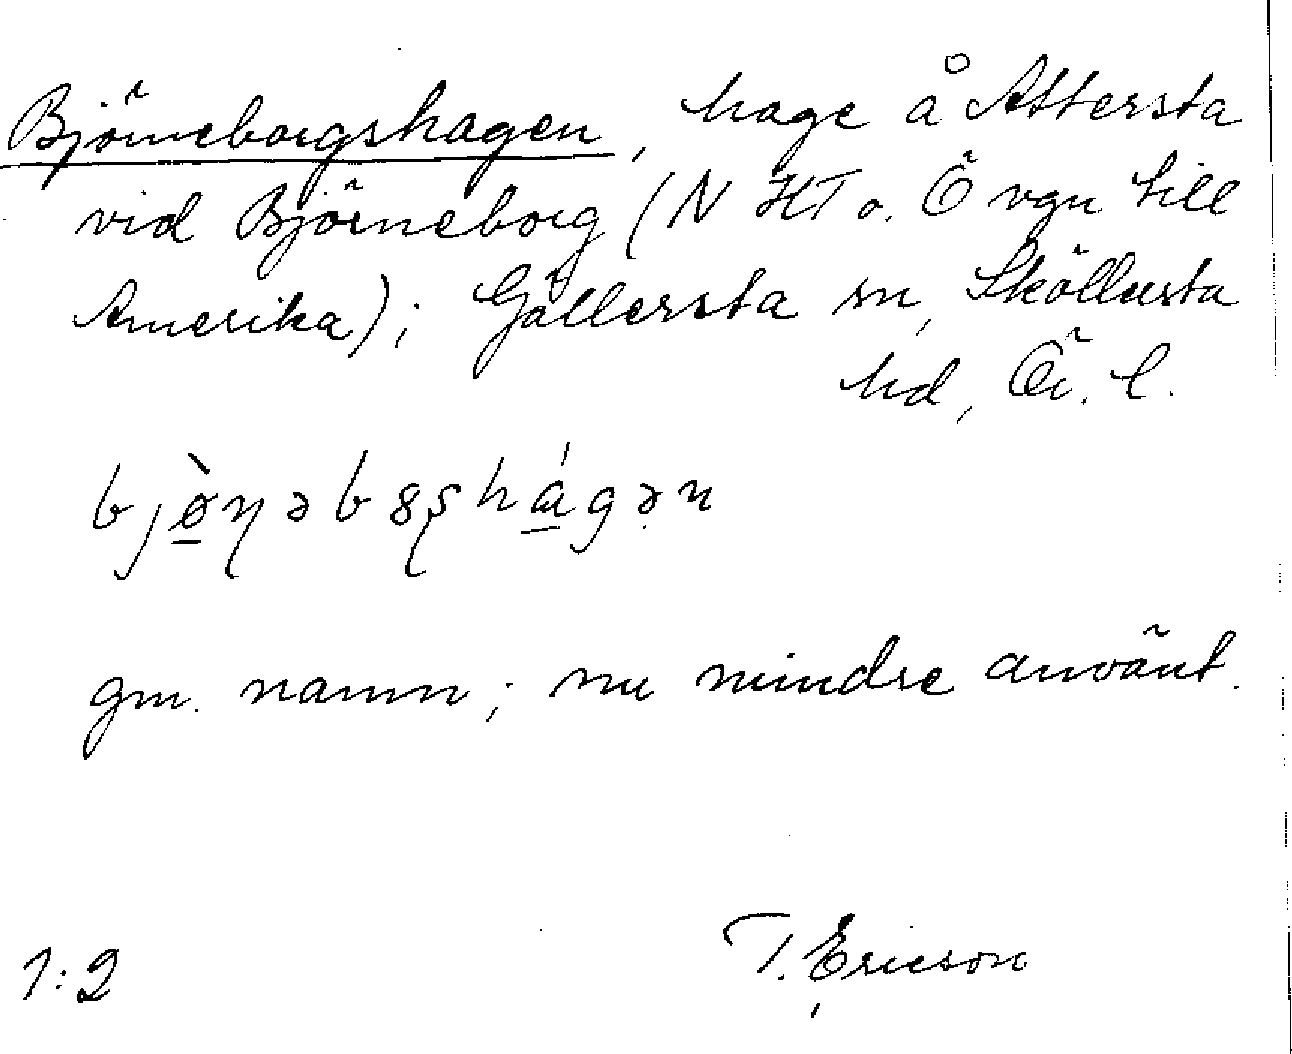 Björneborgshagen, hage å Attersta
vid Björneborg (N HT o. Ö vgn till
Amerika); Gällersta sn, Sköllersta
hd, Ör. l.
bjø̀ɳəbȣʂhágən
gm. namn; nu mindre använt.
1:2 T. Ericson